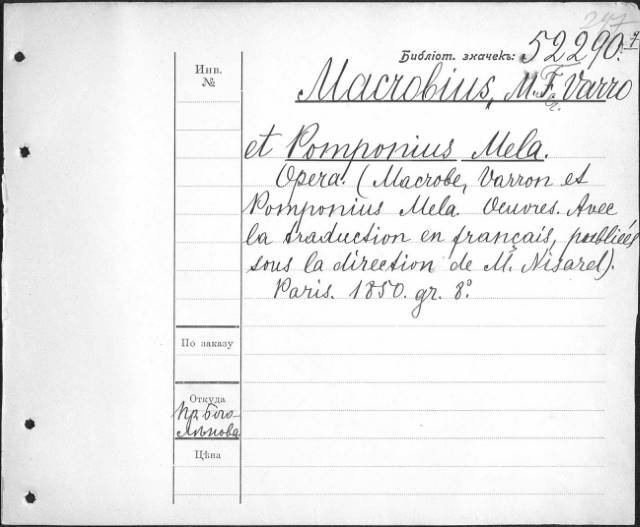 247
Библіот. значекъ: 52290.
Инв.
№
Macrobius, M. Varro
et Pomponius Mela.
Opera. (Macrobe, Varron et
Pomponius Mela. Oeuvres. Avec
la traduction en français, publiées
sous la direction de Mr Nisarel).
Paris. 1850. gr. 8°.
По заказу
Откуда
Пр. Бого-
лѣпова
Цѣна